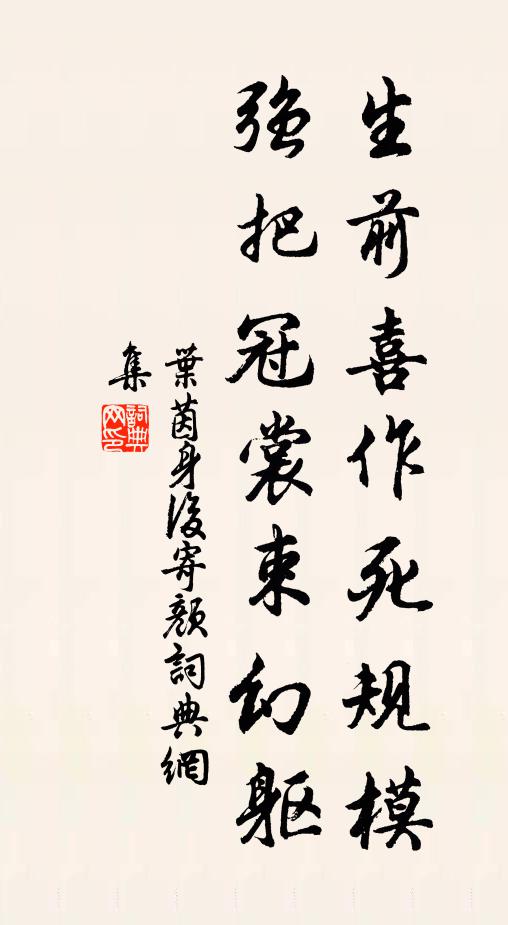 生前喜作死規模
強把冠裳束幻軀
葉茵身後寄顏詞典網
集
詞典
網印